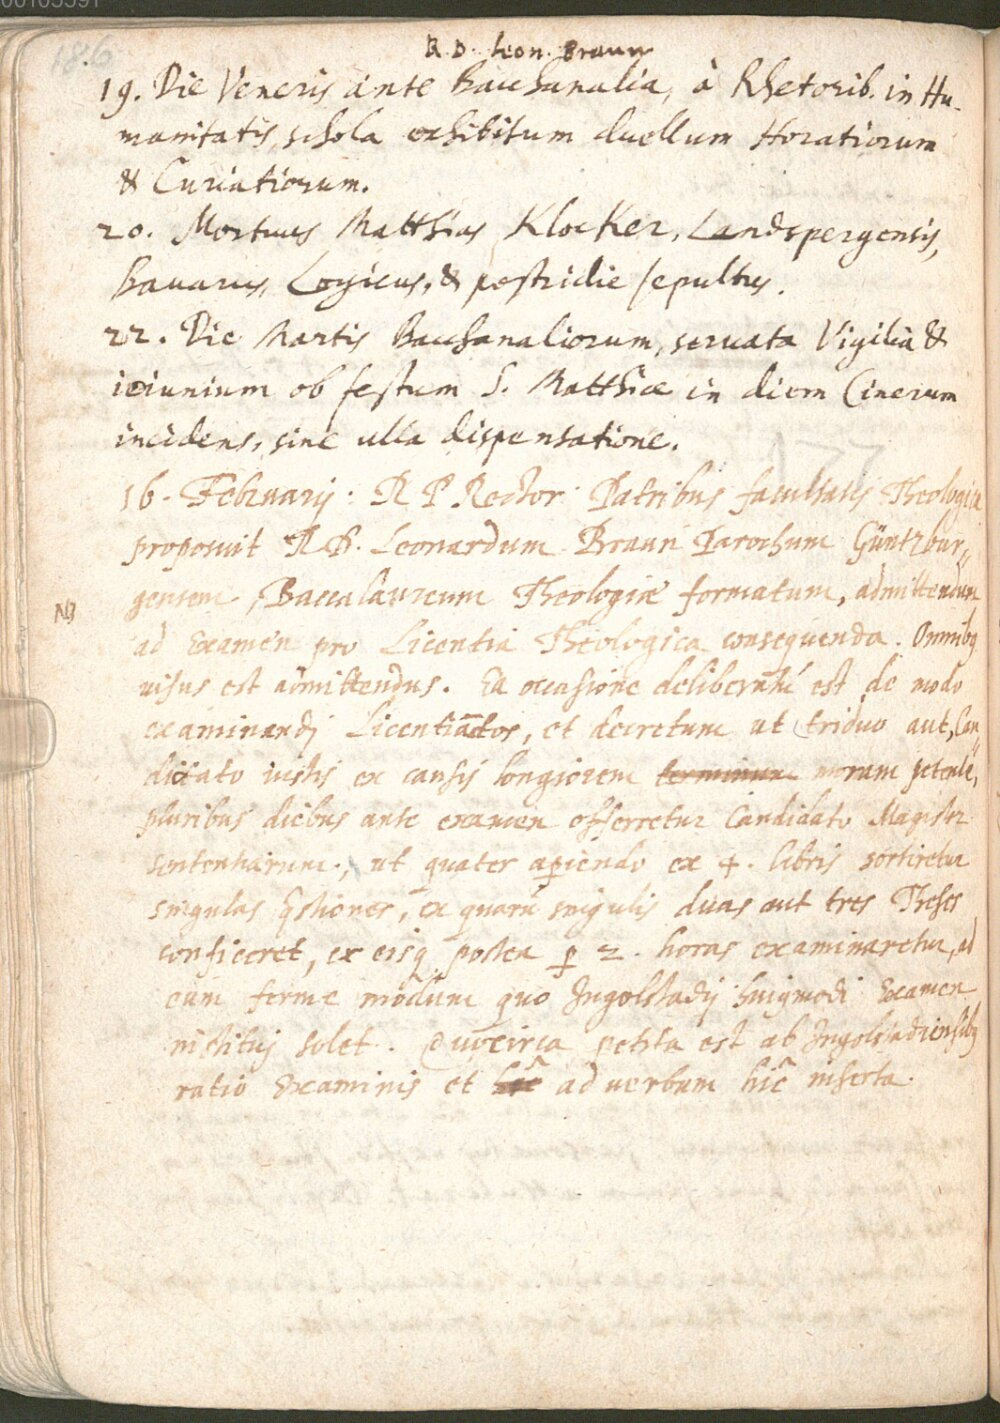 186
R. D. Leon. Braun
19. Die Veneris ante Bacchanalia, à Rhetorib. in Hu-
manitatis schola exhibitum duellum Horatiorum
& Curiatiorum.
20. Mortuus Matthias Klocker, Landspergensis,
Bauarus, Logicus, & postridie sepultus.
22. Die Martis Bacchanaliorum, seruata Vigilia &
ieiunium ob festum S. Matthiæ in diem Cinerum
incidens, sine ulla dispensatione.
16. Februarij. R P Rector Patribus facultatis Theologicæ
proposuit R. D. Leonardum Braun Parochum Güntzbur„
gensem, Baccalaureum Theologiæ formatum, admittendum
NB
ad Examen pro Licentia Theologica consequenda. Omnibq
uisus est admittendus. Ea occasione deliberatũ est de modo
examinandj Licentiādos, et decretum ut triduo aut, Can„
didato iustis ex causis longiorem terminum moram petente,
pluribus diebus ante examen offerretur Candidato Magistr
sententiarum, ut quater aperiendo ex 4. libris sortiretur
singulas q̃stiones, ex quarũ singulis duas aut tres Theses
conficeret, ex eisq̃ postea ꝑ 2. horas examinaretur, ad
eum ferme modum quo Ingolstadij huiꝯmodi Examen
institui solet. Quocirca petita est ab Ingolstadiensibq
ratio Examinis et ad uerbum hîc inserta.